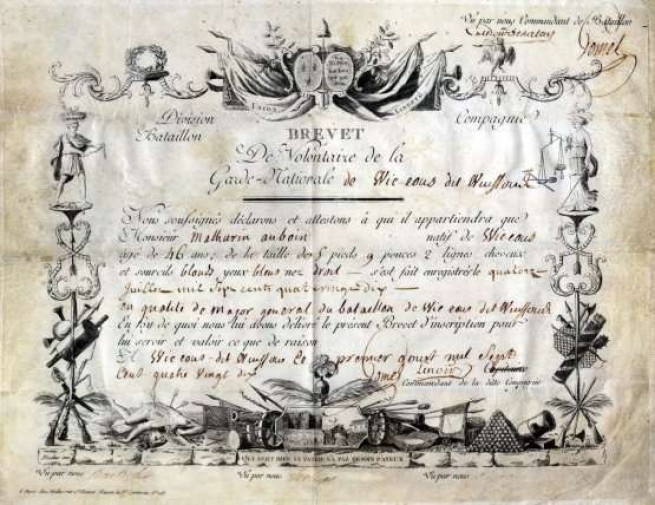 Vu par nous Commandant de Bataillon
Jamel
UNION
LIBERTÉ
Division
Compagnie
Bataillon
BREVET
De Volontaire de la
Garde-Nationale de Vic-sous dit
Nous soussignés déclarons et attestons à qu'il appartiendra que
Monsieur Mathurin auboin natif de Vic sous
âgé de 46 ans; de la taille de 5 pieds 9 pouces 2 lignes cheveux
et sourcils blonds yeux bleus nez droit — s'est fait enregistrer le quatorze
Juillet mil sept cents quatrevingt dix —
en qualité de major general du bataillon de Vic sous dit
En foy de quoi nous lui avons délivré le présent Brevet d'inscription pour
lui servir et valoir ce que de raison
A Vic sous-dit Ce premier aoust mil Sept
Cent quatre Vingt dix Lenoir Capitaine
Commandant de la dite Compagnie
QUI SERT BIEN SA PATRIE N'A PAS BESOIN D'AYEUX
Vu par nous
Vu par nous
Vu par nous